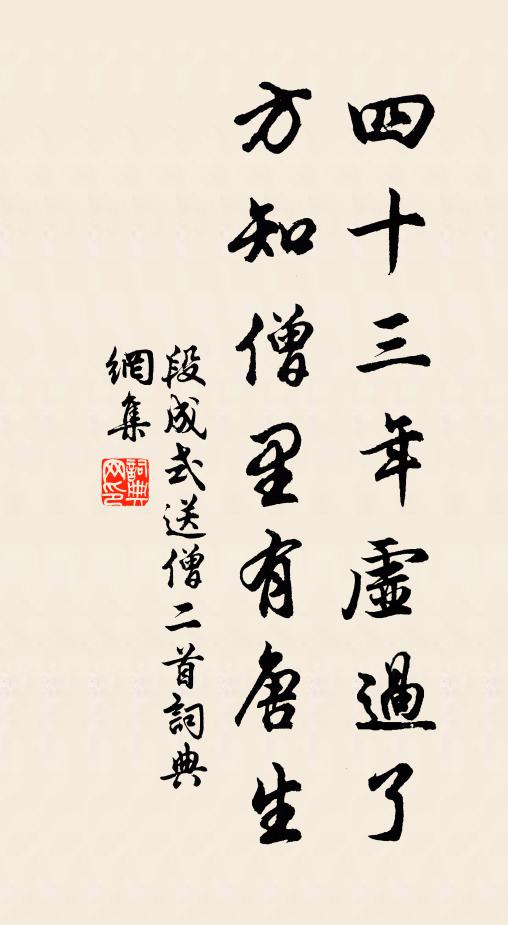 四十三年虛過了
方知僧里有唐生
段成式送僧二首詞典
網集
詞典网印